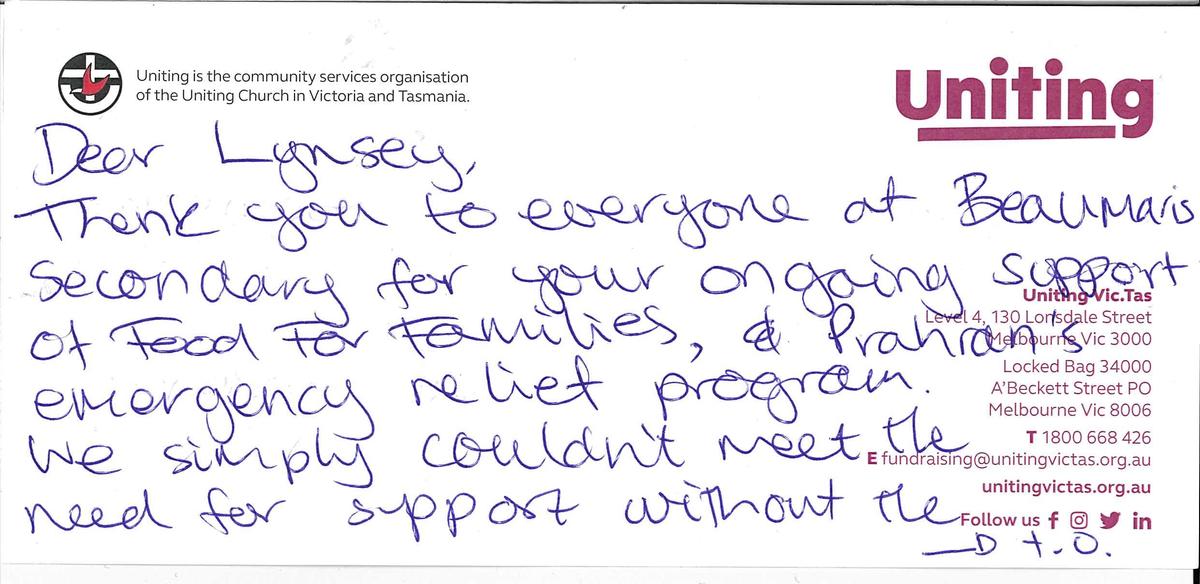 Uniting is the community services organisation
of the Uniting Church in Victoria and Tasmania.
Uniting
Dear Lynsey,
Thank you to everyone at Beaumaris
Secondary for your ongoing support
of Food For Families, & Prahran's
emergency relief program.
We simply couldn't meet the
need for support without the
P.T.O.
Uniting Vic.Tas
Level 4, 130 Lonsdale Street
Melbourne Vic 3000
Locked Bag 34000
A'Beckett Street PO
Melbourne Vic 8006
T 1800 668 426
E fundraising@unitingvictas.org.au
unitingvictas.org.au
Follow us